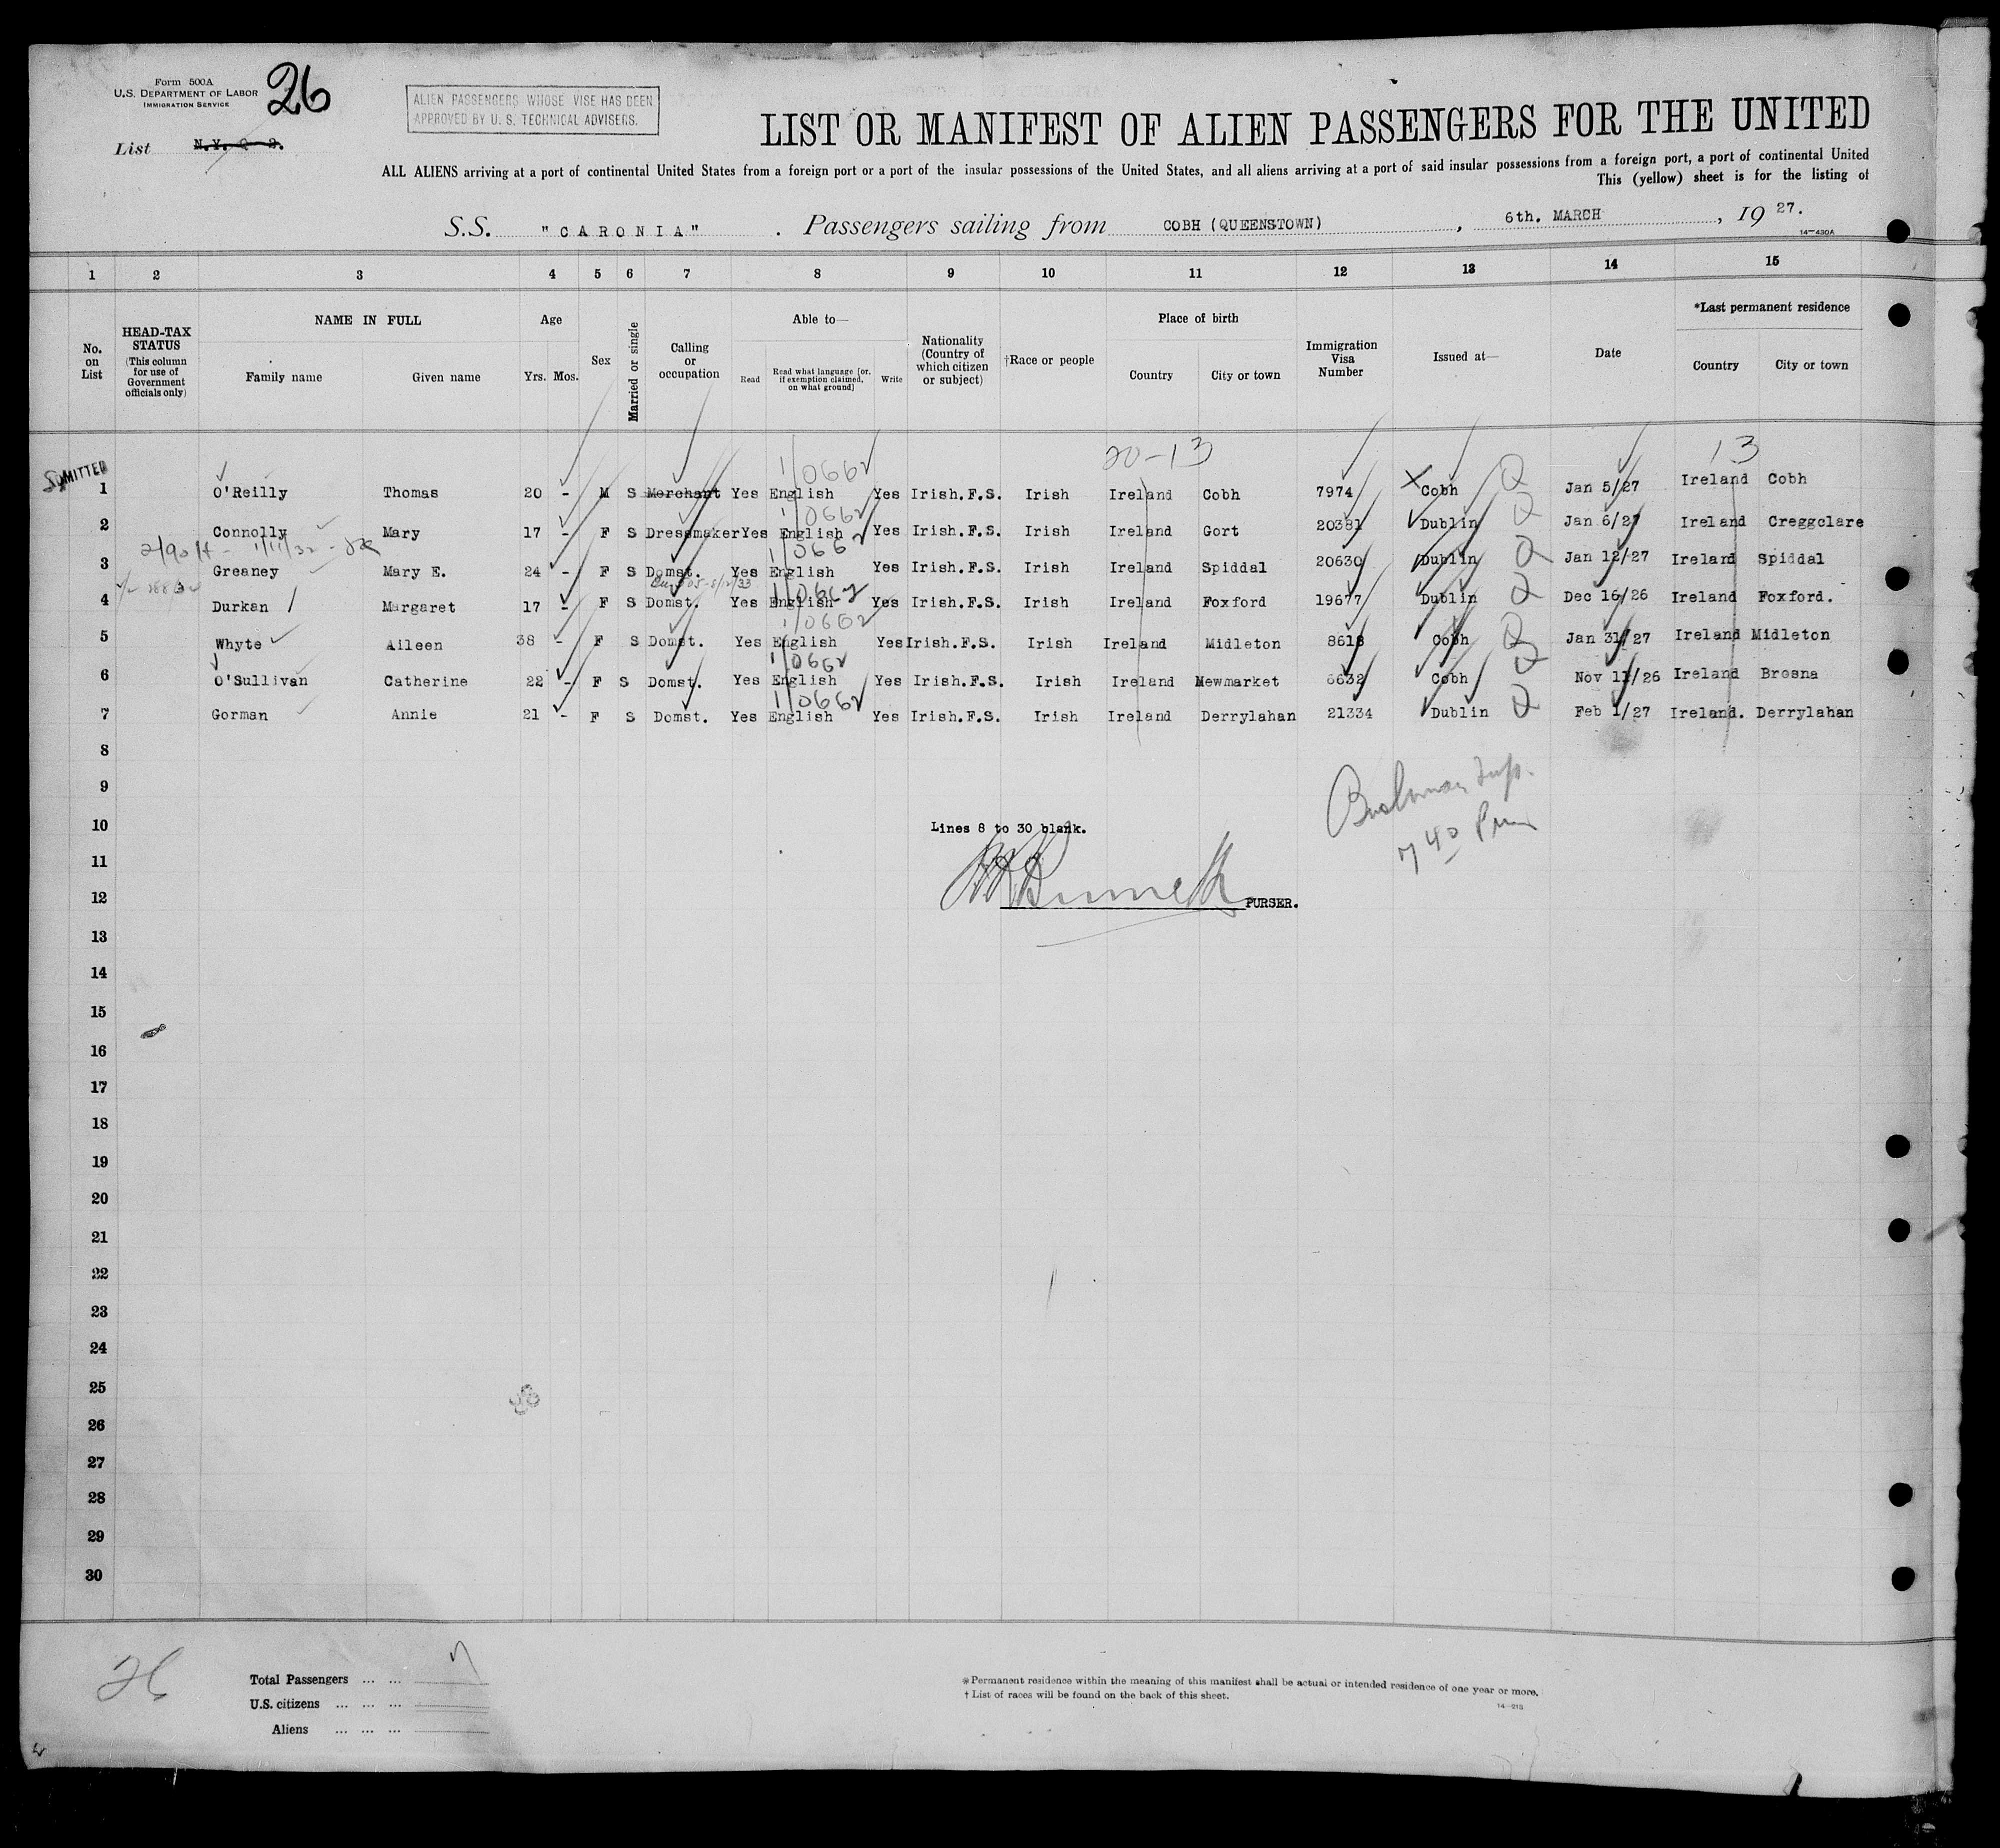 Form 500A
U.S. DEPARTMENT OF LABOR
IMMIGRATION SERVICE
26
List N.Y. Q 2.
ALIEN PASSENGERS WHOSE VISE HAS BEEN
APPROVED BY U. S. TECHNICAL ADVISERS.
LIST OR MANIFEST OF ALIEN PASSENGERS FOR THE UNITED
ALL ALIENS arriving at a port of continental United States from a foreign port or a port of the insular possessions of the United States, and all aliens arriving at a port of said insular possessions from a foreign port, a port of continental United
This (yellow) sheet is for the listing of
S.S. "CARONIA" . Passengers sailing from COBH (QUEENSTOWN) , 6th. MARCH , 19 27.
14—430A
1 2 3 4 5 6 7 8 9 10 11 12 13 14 15
No. on List
HEAD-TAX STATUS (This column for use of Government officials only)
NAME IN FULL
Family name Given name
Age
Yrs. Mos.
Sex
Married or single
Calling or occupation
Able to—
Read Read what language [or, if exemption claimed, on what ground] Write
Nationality (Country of which citizen or subject)
†Race or people
Place of birth
Country City or town
Immigration Visa Number
Issued at—
Date
*Last permanent residence
Country City or town
20-13 13
1/0662
1 O'Reilly Thomas 20 - M S Merchant Yes English Yes Irish.F.S. Irish Ireland Cobh 7974 Cobh Q Jan 5/27 Ireland Cobh
1/0662
2 Connolly Mary 17 - F S Dressmaker Yes English Yes Irish.F.S. Irish Ireland Gort 20381 Dublin Q Jan 6/27 Ireland Creggclare
1/0662
3 Greaney Mary E. 24 - F S Domst. Yes English Yes Irish.F.S. Irish Ireland Spiddal 20630 Dublin Q Jan 12/27 Ireland Spiddal
1/0662
4 Durkan Margaret 17 - F S Domst. Yes English Yes Irish.F.S. Irish Ireland Foxford 19677 Dublin Q Dec 16/26 Ireland Foxford.
1/0662
5 Whyte Aileen 38 - F S Domst. Yes English Yes Irish.F.S. Irish Ireland Midleton 8618 Cobh Q Jan 31/27 Ireland Midleton
1/0662
6 O'Sullivan Catherine 22 - F S Domst. Yes English Yes Irish.F.S. Irish Ireland Newmarket 6632 Cobh Q Nov 11/26 Ireland Brosna
1/0662
7 Gorman Annie 21 - F S Domst. Yes English Yes Irish.F.S. Irish Ireland Derrylahan 21334 Dublin Q Feb 1/27 Ireland. Derrylahan
8
9
10 Lines 8 to 30 blank.
7 40 Pm
11
12 PURSER.
13
14
15
16
17
18
19
20
21
22
23
24
25
26
27
28
29
30
26
Total Passengers ... ... 7
U.S. citizens ... ... ...
Aliens ... ... ...
*Permanent residence within the meaning of this manifest shall be actual or intended residence of one year or more.
† List of races will be found on the back of this sheet.